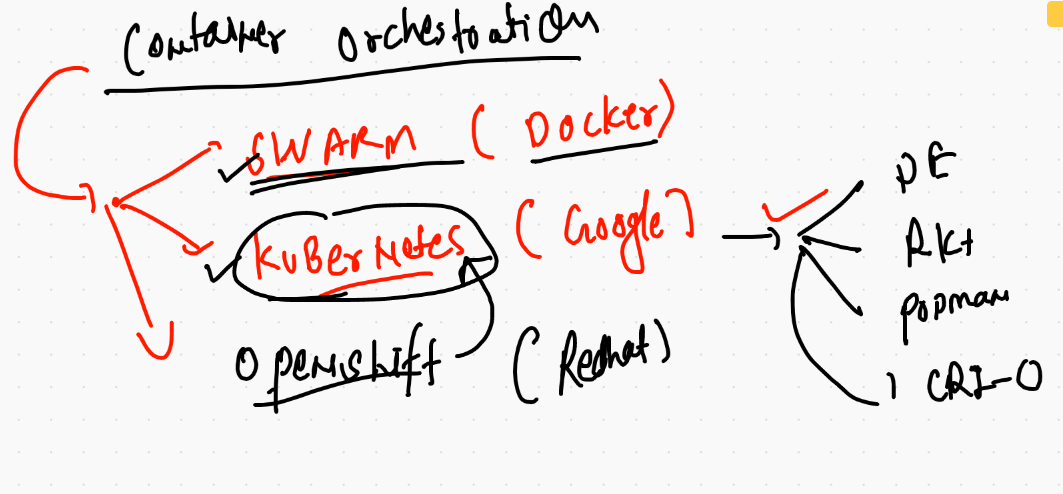 Container orchestration
SWARM (Docker)
KuBerNetes (Google)
Openshift (Redhat)
DE
Rkt
PODMAN
CRI-O